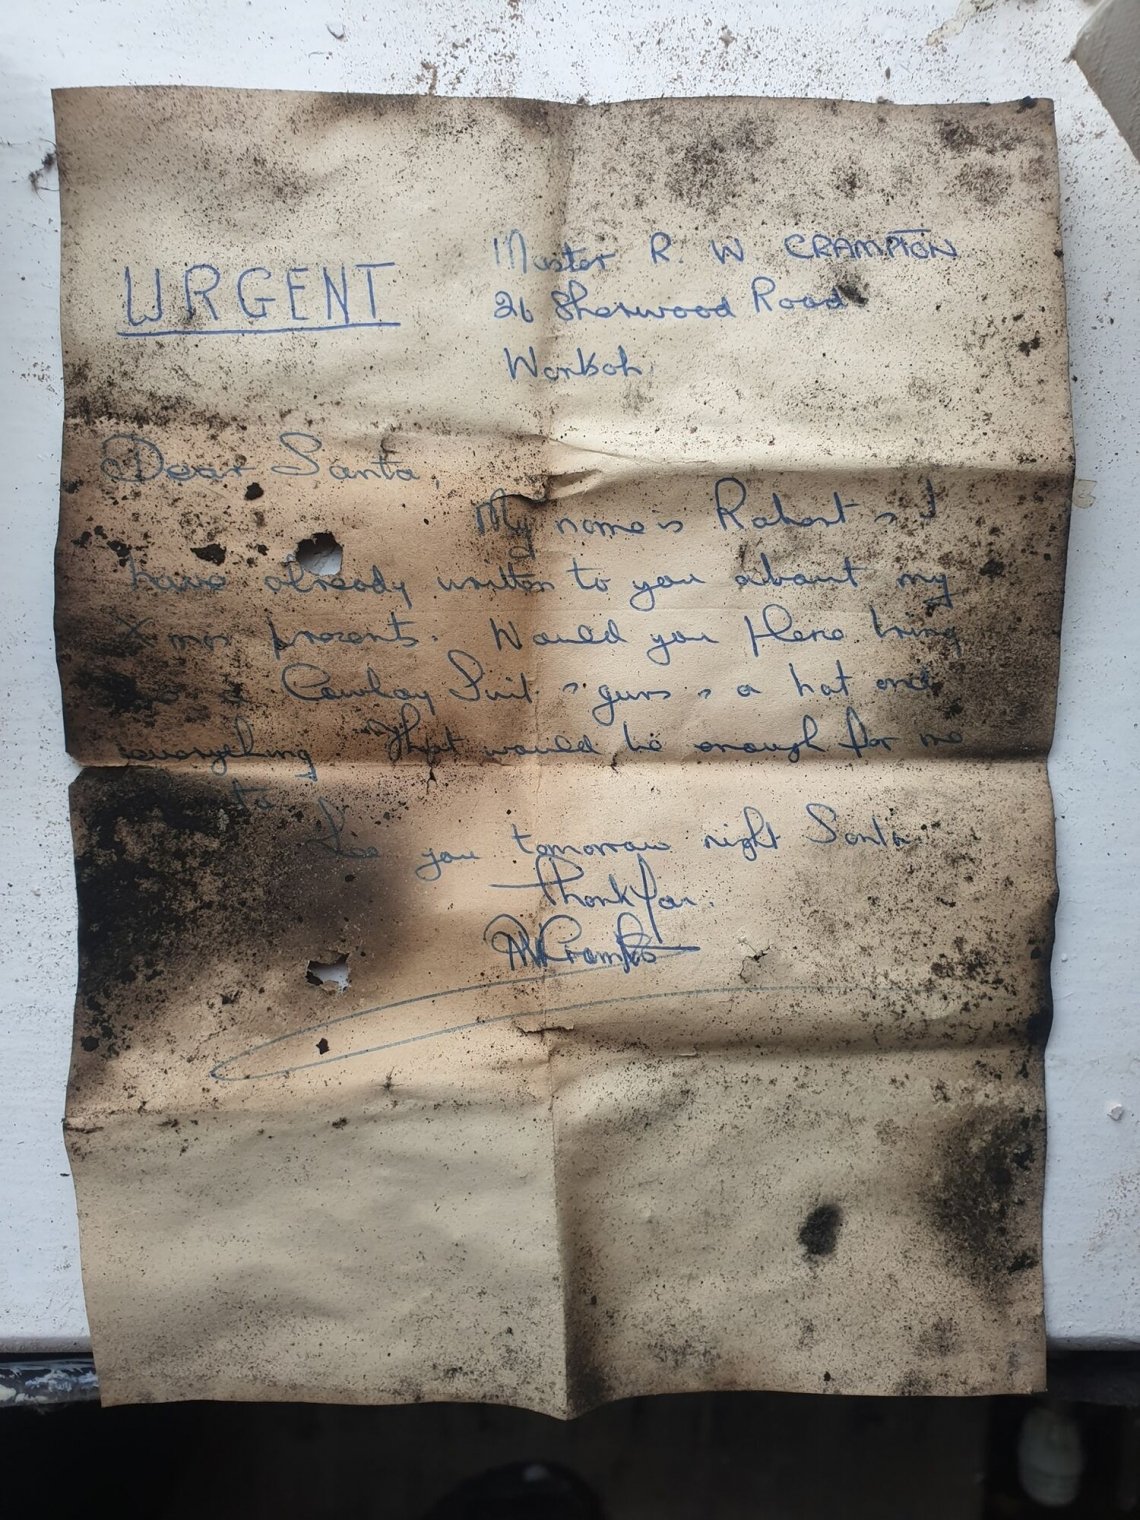 URGENT
Master R. W CRAMPTON
26 Sherwood Road
Worksop
Dear Santa,
My name is Robert & I
have already written to you about my
Xmas presents. Would you please bring
a Cowboy Suit & guns & a hat and
everything That would be enough for me
See you tomorrow night Santa
Thank you.
RWCrampton